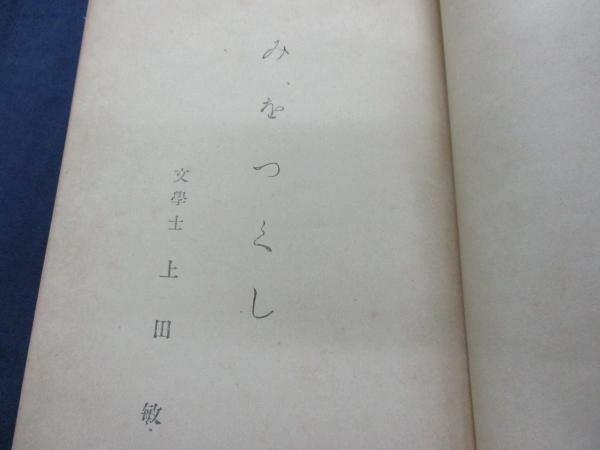 みをつくし
文學士 上田敏